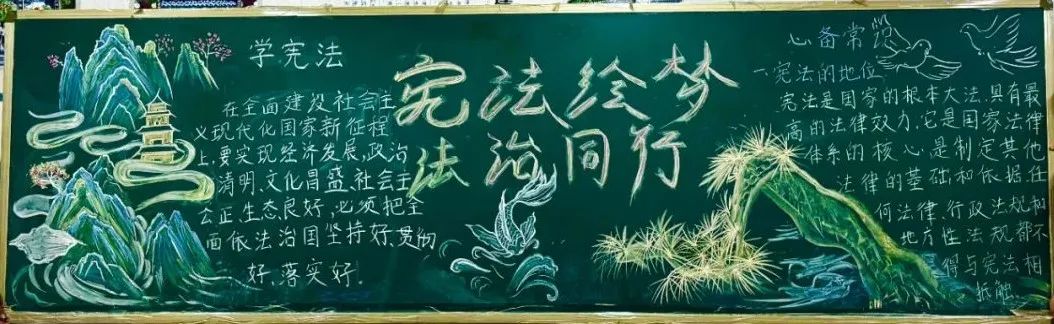 学宪法
在全面建设社会主
义现代化国家新征程
上,要实现经济发展、政治
清明、文化昌盛、社会主
公正、生态良好,必须把全
面依法治国坚持好、贯彻
好、落实好。
宪法绘梦
法治同行
必备常识
一宪法的地位
宪法是国家的根本大法,具有最
高的法律效力,它是国家法律
体系的核心,是制定其他
法律的基础和依据任
何法律、行政法规和
地方性法规都不
得与宪法相
抵触